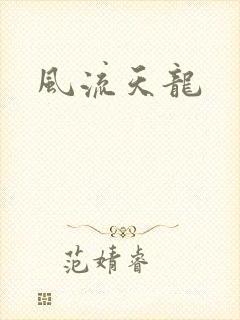 風流天龍
范婧睿